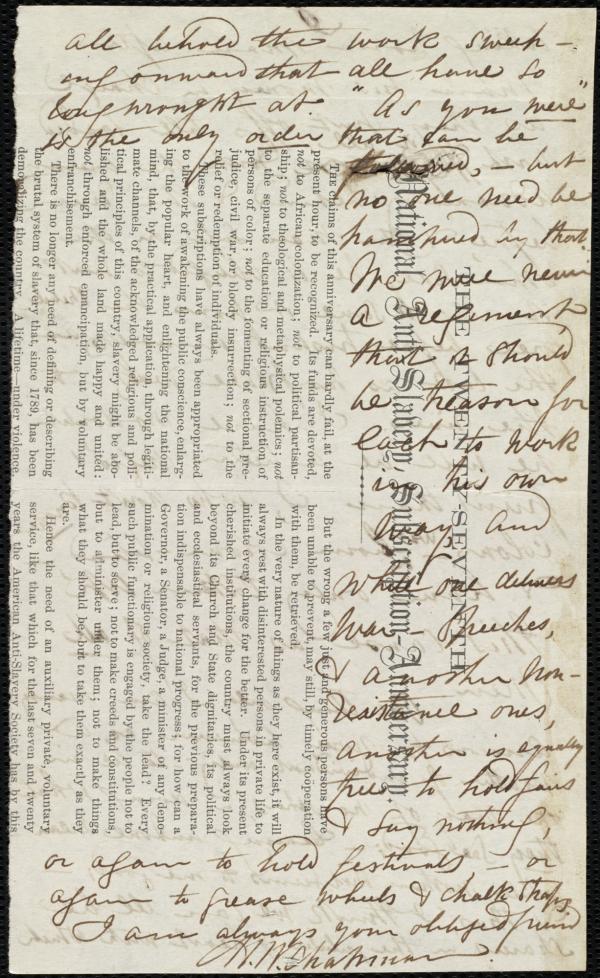 all behold the work sweep-
ing onward that all have so
long wrought at. "As you were"
is the only order that can be
followed, - but
no one need be
hampered by that.
We were never
a regiment
that it should
be treason for
each to work
in his own
way. And
while one delivers
war-speeches,
& another non-
resistance ones,
another is equally
free to hold fairs
& say nothing,
or again to hold festivals, - or
again to grease wheels & chalk
I am always your obliged friend
M. W. Chapman.
THE TWENTY-SEVENTH
National Anti-Slavery Subscription-Anniversary.
THE claims of this anniversary can hardly fail, at the
present hour, to be recognized. Its funds are devoted,
not to African colonization; not to political partisan-
ship; not to theological and metaphysical polemics; not
to the separate education or religious instruction of
persons of color; not to the fomenting of sectional pre-
judice, civil war, or bloody insurrection; not to the
relief or redemption of individuals.
These subscriptions have always been appropriated
to the work of awakening the public conscience, enlarg-
ing the popular heart, and enlightening the national
mind, that, by the practical application, through legiti-
mate channels, of the acknowledged religious and poli-
tical principles of this country, slavery might be abo-
lished and the whole land made happy and united:
not through enforced emancipation, but by voluntary
enfranchisement.
There is no longer any need of defining or describing
the brutal system of slavery that, since 1789, has been
demoralizing the country. A lifetime—under violence
But the wrong a few just and generous persons have
been unable to prevent, may still, by timely coöperation
with them, be retrieved.
In the very nature of things as they here exist, it will
always rest with disinterested persons in private life to
initiate every change for the better. Under its present
cherished institutions, the country must always look
beyond its Church and State dignitaries, its political
and ecclesiastical servants, for the previous prepara-
tion indispensable to national progress; for how can a
Governor, a Senator, a Judge, a minister of any deno-
mination or religious society, take the lead? Every
such public functionary is engaged by the people not to
lead, but to serve; not to make creeds and constitutions,
but to administer under them; not to make things
what they should be, but to take them exactly as they
are.
Hence the need of an auxiliary private, voluntary
service, like that which for the last seven and twenty
years the American Anti-Slavery Society has by this